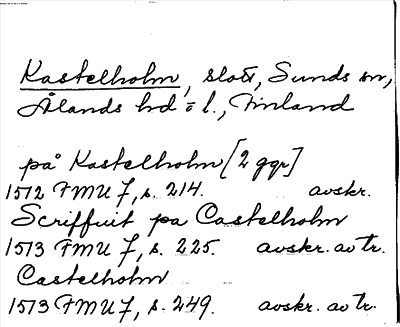 Kastelholm, slott, Sunds sn,
Ålands hd = l., Finland
på Kastelholm [2 ggr]
1512 FMU 7, s. 214. avskr.
Scriffuit pa Castelholm
1513 FMU 7, s. 225. avskr. av tr.
Castelholm
1513 FMU 7, s. 249. avskr. av tr.